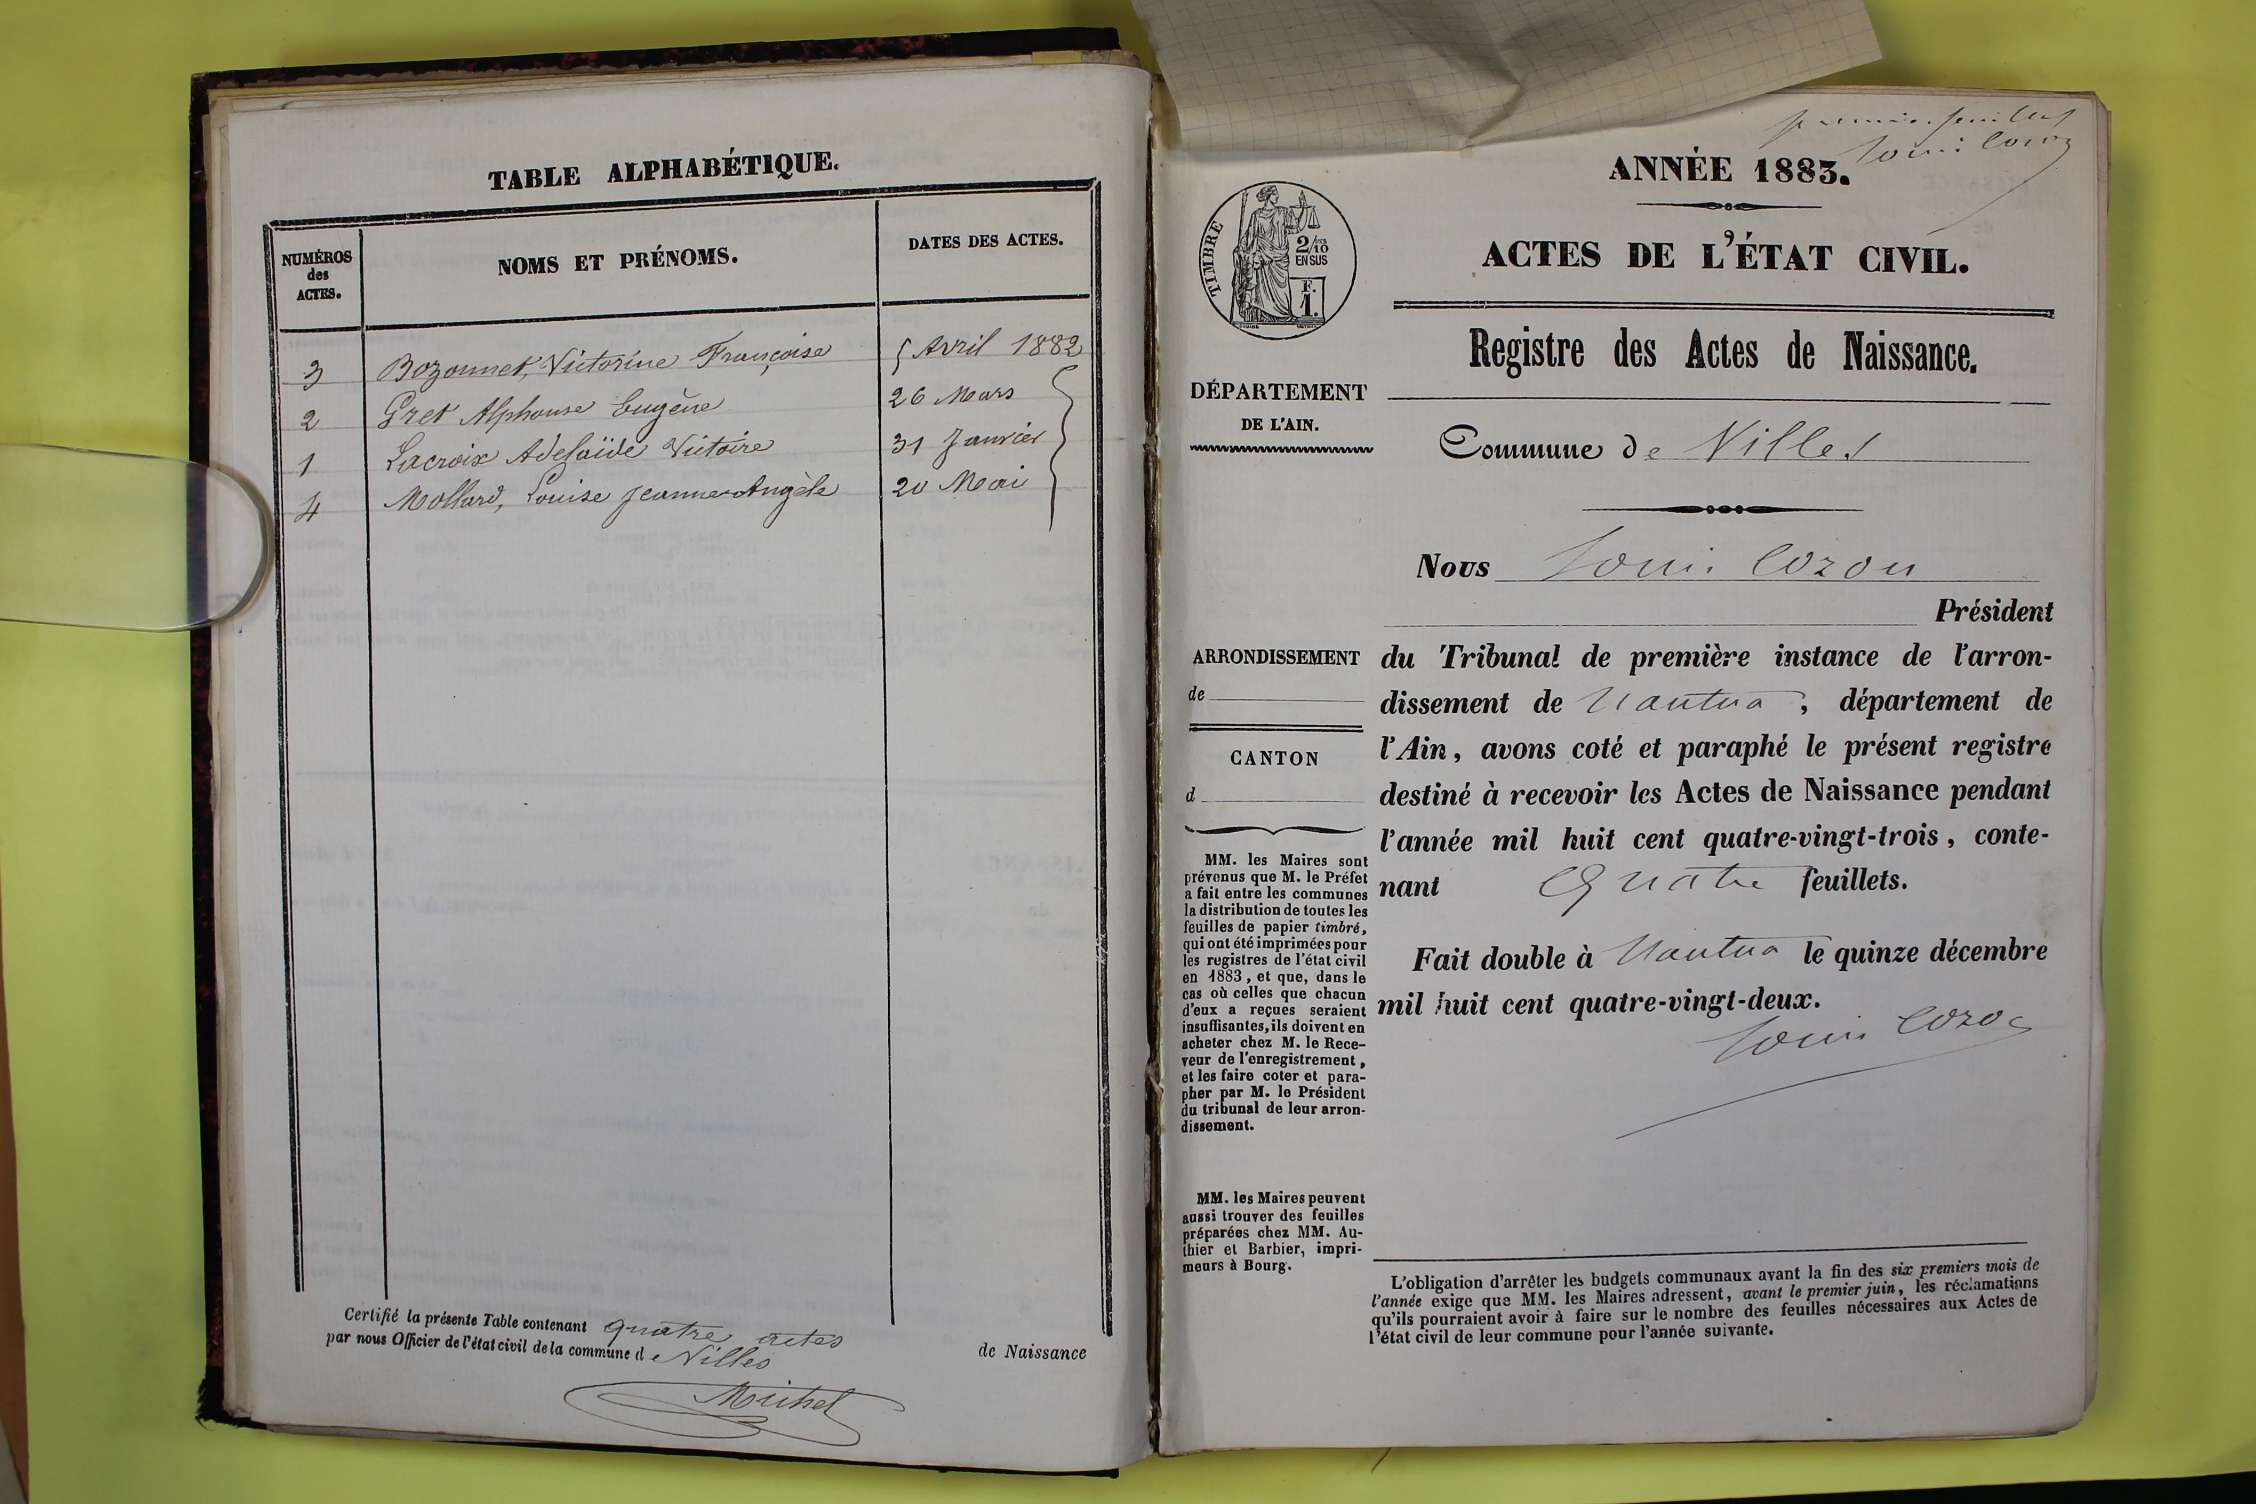 TABLE ALPHABÉTIQUE.
NUMÉROS
des
ACTES.
NOMS ET PRÉNOMS.
DATES DES ACTES.
3 Bozonnet, Victorine Françoise 5 Avril 1882
2 Gret Alphonse Eugène 26 Mars
1 Lacroix Adélaïde Victoire 31 Janvier
4 Mollard, Louise Jeanne-Angèle 20 Mai
Certifié la présente Table contenant quatre actes
de Naissance
par nous Officier de l'état civil de la commune de Villes
Michel
premier feuillet
Louis Cozon
ANNÉE 1883.
TIMBRE
2/10
EN SUS
F.
1.
ACTES DE L'ÉTAT CIVIL.
Registre des Actes de Naissance.
DÉPARTEMENT
DE L'AIN.
Commune de Villes
Nous Louis Cozon
Président
ARRONDISSEMENT
de
CANTON
d
du Tribunal de première instance de l'arron-
dissement de Nantua, département de
l'Ain, avons coté et paraphé le présent registre
destiné à recevoir les Actes de Naissance pendant
l'année mil huit cent quatre-vingt-trois, conte-
nant Quatre feuillets.
Fait double à Nantua le quinze décembre
mil huit cent quatre-vingt-deux.
Louis Cozon
MM. les Maires sont
prévenus que M. le Préfet
a fait entre les communes
la distribution de toutes les
feuilles de papier timbré,
qui ont été imprimées pour
les registres de l'état civil
en 1883, et que, dans le
cas où celles que chacun
d'eux a reçues seraient
insuffisantes, ils doivent en
acheter chez M. le Rece-
veur de l'enregistrement,
et les faire coter et para-
pher par M. le Président
du tribunal de leur arron-
dissement.
MM. les Maires peuvent
aussi trouver des feuilles
préparées chez MM. Au-
thier et Barbier, impri-
meurs à Bourg.
L'obligation d'arrêter les budgets communaux avant la fin des six premiers mois de
l'année exige que MM. les Maires adressent, avant le premier juin, les réclamations
qu'ils pourraient avoir à faire sur le nombre des feuilles nécessaires aux Actes de
l'état civil de leur commune pour l'année suivante.